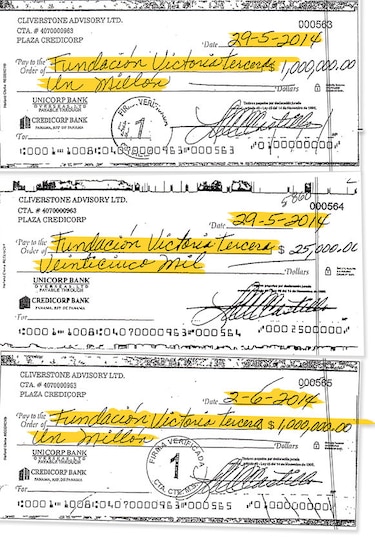 CLIVERSTONE ADVISORY LTD.
CTA. # 4070000963
000563
PLAZA CREDICORP
Date 29-5-2014
Pay to the
Order of Fundación Victoria tercera $ 1,000,000.00
Un Millón
Dollars
UNICORP BANK
OVERSEAS LTD.
PAYABLE THROUGH
FIRMA VERIFICADA
1
CREDICORP BANK
PANAMA, REP. DE PANAMA
For
CLIVERSTONE ADVISORY LTD.
000564
CTA. # 4070000963
PLAZA CREDICORP
Date 29-5-2014
Pay to the
Order of Fundación Victoria tercera $ 25,000.00
Veinticinco Mil
Dollars
UNICORP BANK
OVERSEAS LTD.
PAYABLE THROUGH
CREDICORP BANK
PANAMA, REP. DE PANAMA
For
CLIVERSTONE ADVISORY LTD.
000565
CTA. # 4070000963
PLAZA CREDICORP
Date 2-6-2014
Pay to the
Order of Fundación Victoria tercera $ 1,000,000.00
Un Millón
Dollars
UNICORP BANK
OVERSEAS LTD.
PAYABLE THROUGH
FIRMA VERIFICADA
1
CREDICORP BANK
PANAMA, REP. DE PANAMA
For